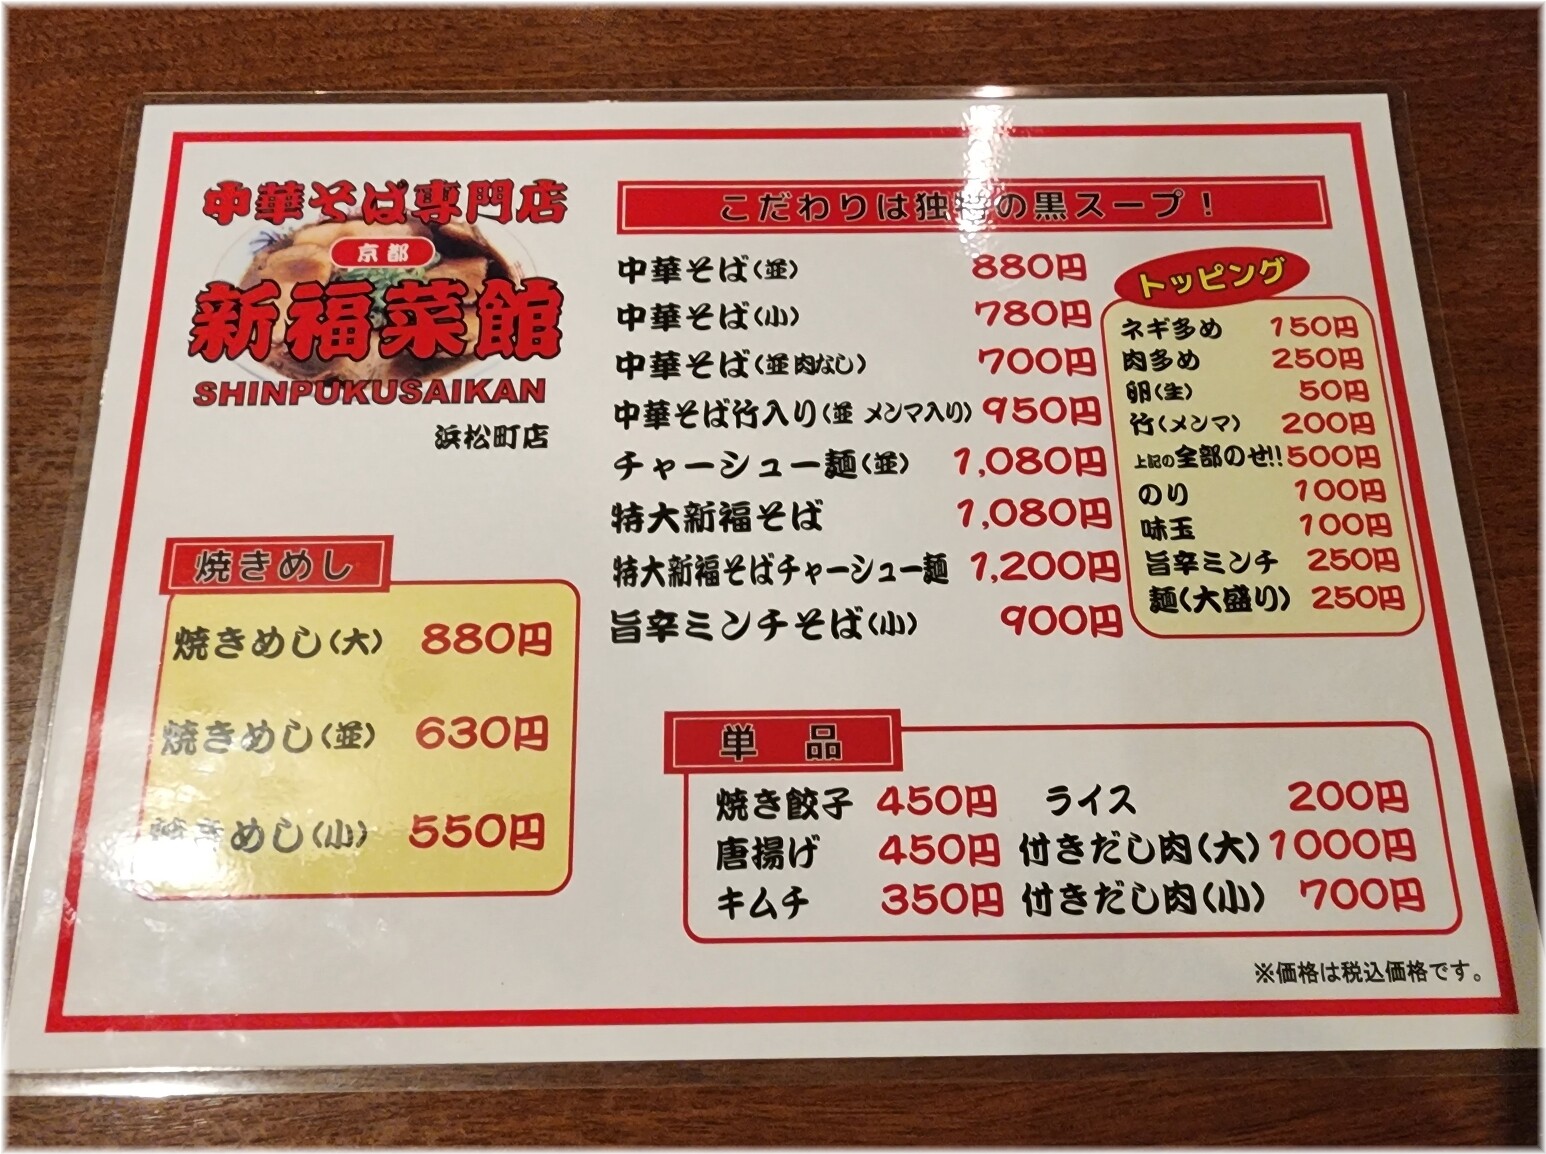 中華そば専門店
京都
新福菜館
SHINPUKUSAIKAN
浜松町店
こだわりは独特の黒スープ！
中華そば(並) 880円
中華そば(小) 780円
中華そば(並 肉なし) 700円
中華そば竹入り(並 メンマ入り) 950円
チャーシュー麺(並) 1,080円
特大新福そば 1,080円
特大新福そばチャーシュー麺 1,200円
旨辛ミンチそば(小) 900円
トッピング
ネギ多め 150円
肉多め 250円
卵(生) 50円
竹(メンマ) 200円
上記の全部のせ!! 500円
のり 100円
味玉 100円
旨辛ミンチ 250円
麺(大盛り) 250円
焼きめし
焼きめし(大) 880円
焼きめし(並) 630円
焼きめし(小) 550円
単品
焼き餃子 450円 ライス 200円
唐揚げ 450円 付きだし肉(大) 1000円
キムチ 350円 付きだし肉(小) 700円
※価格は税込価格です。